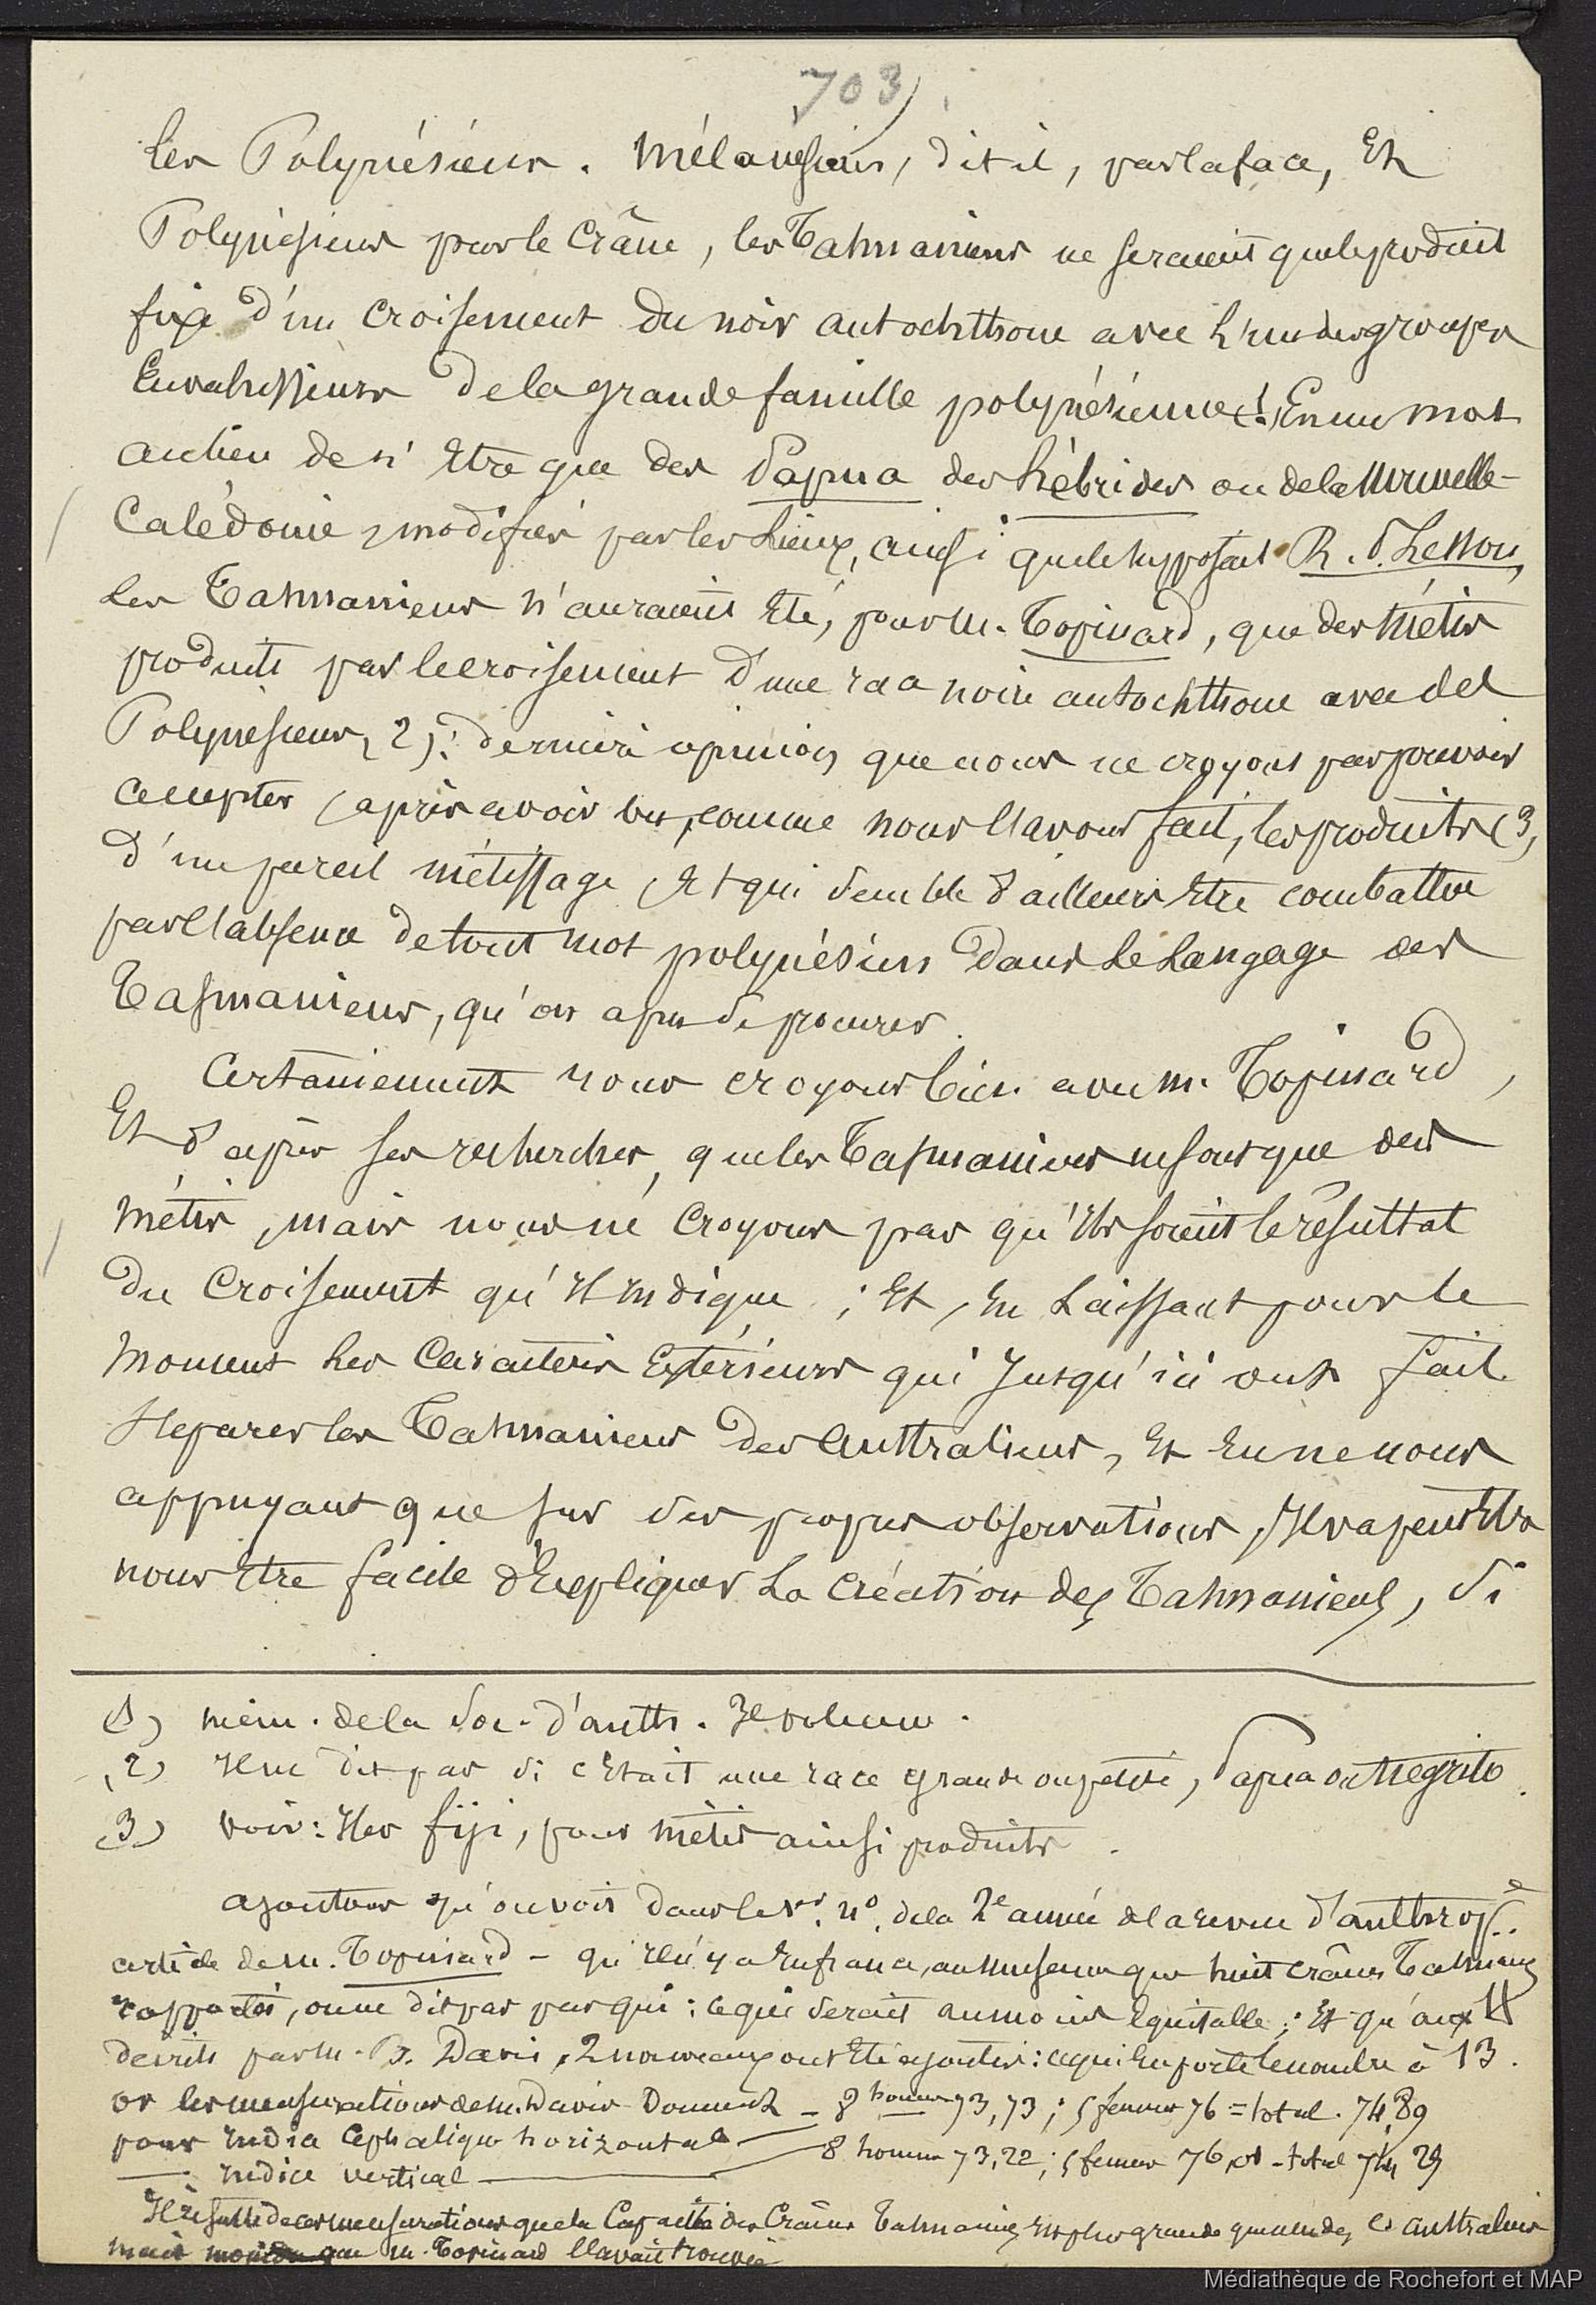 703
les Polynésiens. Mélanésiens, dit-il, par la face, Et
Polynésiens par le Crâne, les Tasmaniens ne seraient que le produit
fixe d'un Croisement du noir autochthone avec l'un des groupes
Envahisseurs de la grande famille polynésienne (1). En un mot
au lieu de n'Etre que des Papua des hébrides ou de la Nouvelle-
Calédonie, modifiés par les lieux, ainsi que le supposait R. P. Lesson,
les Tasmaniens n'auraient Eté, pour M. Topinard, que des métis
produits par le croisement d'une race noire autochthone avec des
Polynésiens (2): dernière opinion que nous ne croyons pas pouvoir
accepter, après avoir vu, comme nous l'avons fait, les produits (3)
d'un pareil métissage, Et qui semble d'ailleurs Etre combattue
par l'absence de tout mot polynésien dans le Langage des
Tasmaniens, qu'on a pu se procurer.
Certainement nous croyons bien avec M. Topinard,
Et d'après ses recherches, que les Tasmaniens ne sont que des
métis, mais nous ne Croyons pas qu'Ils soient le résultat
du Croisement qu'Il Indique; Et, En Laissant pour le
moment les Caractères Extérieurs qui Jusqu'ici ont fait
séparer les Tasmaniens des Australiens, Et En ne nous
appuyant que sur ses propres observations, Il va peut Etre
nous Etre facile d'Expliquer La Création des Tasmaniens, si
(1) mém. de la Soc. d'anth. 3e volume.
(2) Il ne dit pas si c'Etait une race grande ou petite, Papua ou Negrito.
(3) voir: Iles fiji, pour métis ainsi produits.
ajoutons qu'on voit dans le 1er. no. de la 2e année de la revue d'anthrop.e
article de M. Topinard - qu'Il n'y a En france, au Museum que huit crânes Tasmaniens
rapportés, on ne dit pas par qui: ce qui serait au moins Equitable; Et qu'aux 11
décrits par M. B. Davis, 2 nouveaux ont Eté ajoutés: ce qui En porte le nombre à 13.
or les mensurations de M. Davis Donnent - 8 hommes 73,73; 5 femmes 76 = total. 74,89
pour Indice Céphalique horizontal
— Indice vertical — 8 hommes 73,22; 5 femmes 76,01 - total 74,29
Il résulte de ces mensurations que la Capacité des Crânes Tasmaniens Est plus grande que celle des Australiens
mais moindre que M. Topinard l'avait trouvée
Médiathèque de Rochefort et MAP